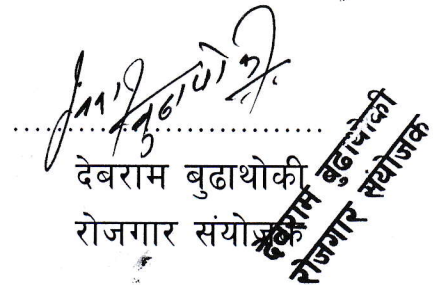 देबराम बुढाथोकी
रोजगार संयोजक
देबराम बुढाथोकी
रोजगार संयोजक